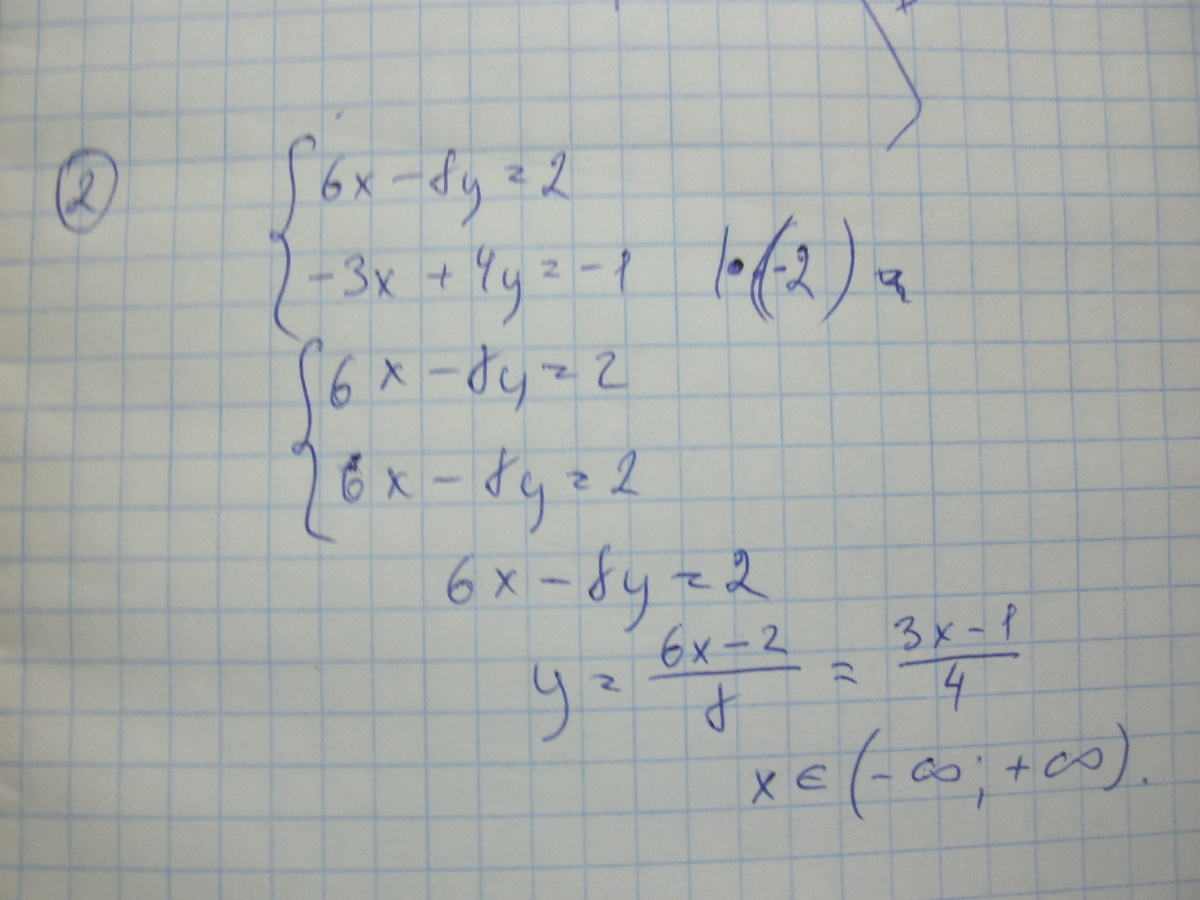 2
6x - 8y = 2
-3x + 4y = -1 | · (-2)
6x - 8y = 2
6x - 8y = 2
6x - 8y = 2
y = (6x - 2)/8 = (3x - 1)/4
x ∈ (-∞; +∞).